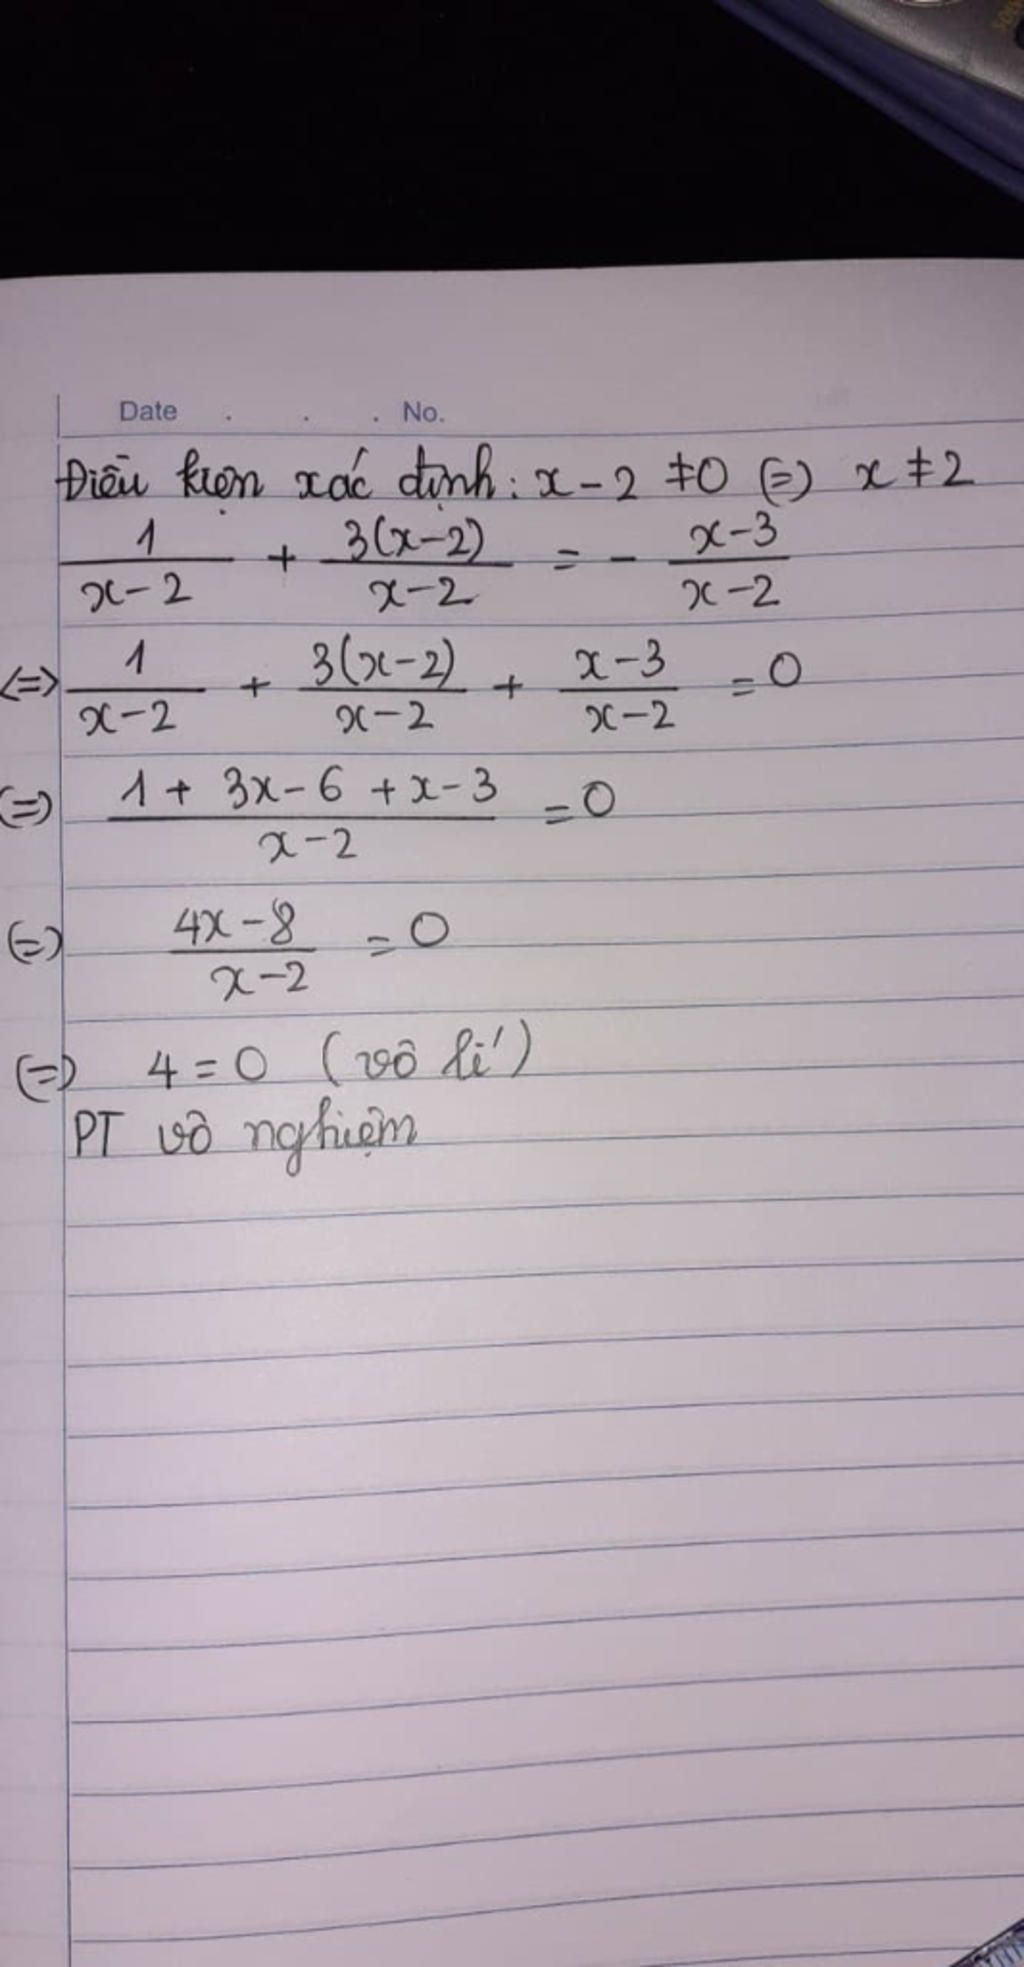 Date . . . No.
Điều kiện xác định: x - 2 ≠ 0 (=) x ≠ 2
1/(x-2) + 3(x-2)/(x-2) = - (x-3)/(x-2)
<=> 1/(x-2) + 3(x-2)/(x-2) + (x-3)/(x-2) = 0
(=) (1 + 3x - 6 + x - 3)/(x-2) = 0
(=) (4x - 8)/(x-2) = 0
(=) 4 = 0 (vô lí)
PT vô nghiệm